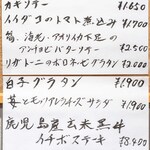 カキソテー ¥1.650
イイダコのトマト煮込み ¥1.700
筍、海老、アメリカ下足の
アンチョビバターソテー ¥2.500
リガトーニのボロネーゼグラタン ¥2.000
白子グラタン ¥1.900
苺とモッツァレラチーズサラダ ¥1.900
鹿児島産玄米黒牛
イチボステーキ ¥8.400